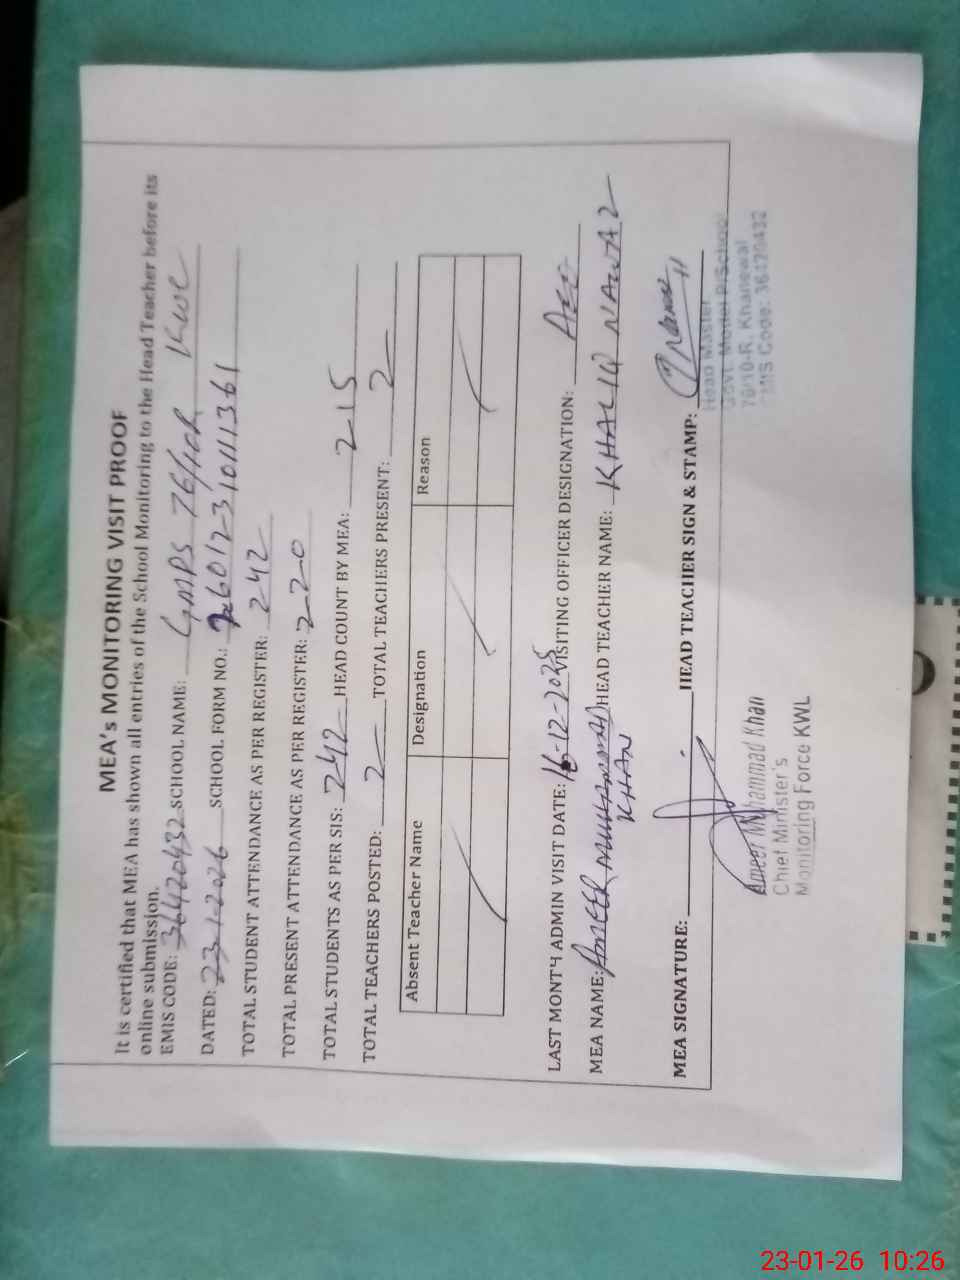 MEA's MONITORING VISIT PROOF
It is certified that MEA has shown all entries of the School Monitoring to the Head Teacher before its
online submission.
EMIS CODE: 36420432 SCHOOL NAME: GMPS 76/10R KWL
DATED: 23-1-2026 SCHOOL FORM NO.: 26012310111361
TOTAL STUDENT ATTENDANCE AS PER REGISTER: 242
TOTAL PRESENT ATTENDANCE AS PER REGISTER: 220
TOTAL STUDENTS AS PER SIS: 242 HEAD COUNT BY MEA: 215
TOTAL TEACHERS POSTED: 2 TOTAL TEACHERS PRESENT: 2
Absent Teacher Name Designation Reason
LAST MONTH ADMIN VISIT DATE: 16-12-2025 VISITING OFFICER DESIGNATION: AEO
MEA NAME: AMEER MUHAMMAD KHAN HEAD TEACHER NAME: KHALID NAWAZ
MEA SIGNATURE: HEAD TEACHER SIGN & STAMP:
Head Master
Govt. Model P/School
76/10-R, Khanewal
EMIS Code: 36420432
Ameer Muhammad Khan
Chief Minister's
Monitoring Force KWL
23-01-26 10:26